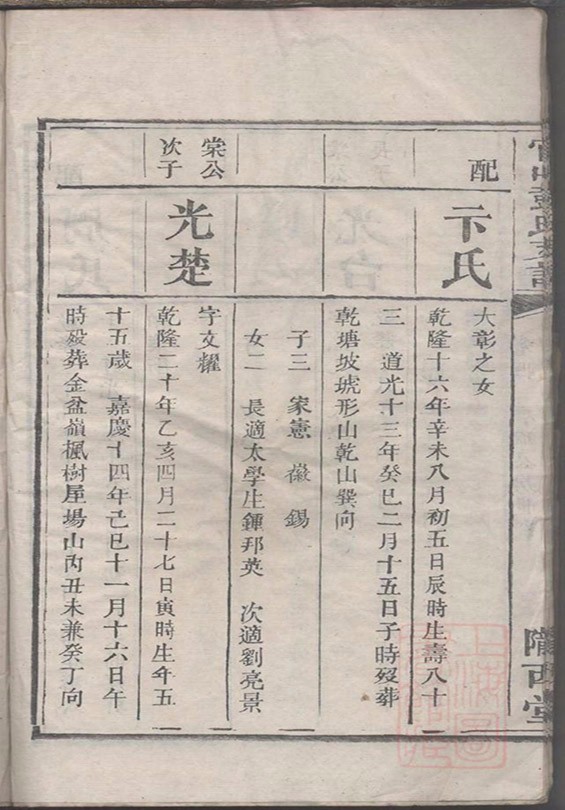 配
卞氏
大彰之女
乾隆十六年辛未八月初五日辰時生壽八十
三 道光十三年癸巳二月十五日子時歿葬
乾塘坡琥形山乾山巽向
子三 家憲 徽 錫
女二 長適太學生鍾邦英 次適劉亮景
棠公
次子
光楚
字文耀
乾隆二十年乙亥四月二十七日寅時生年五
十五歲 嘉慶十四年己巳十一月十六日午
時殁葬金盆嶺楓樹屋場山丙丑未兼癸丁向
隴西堂